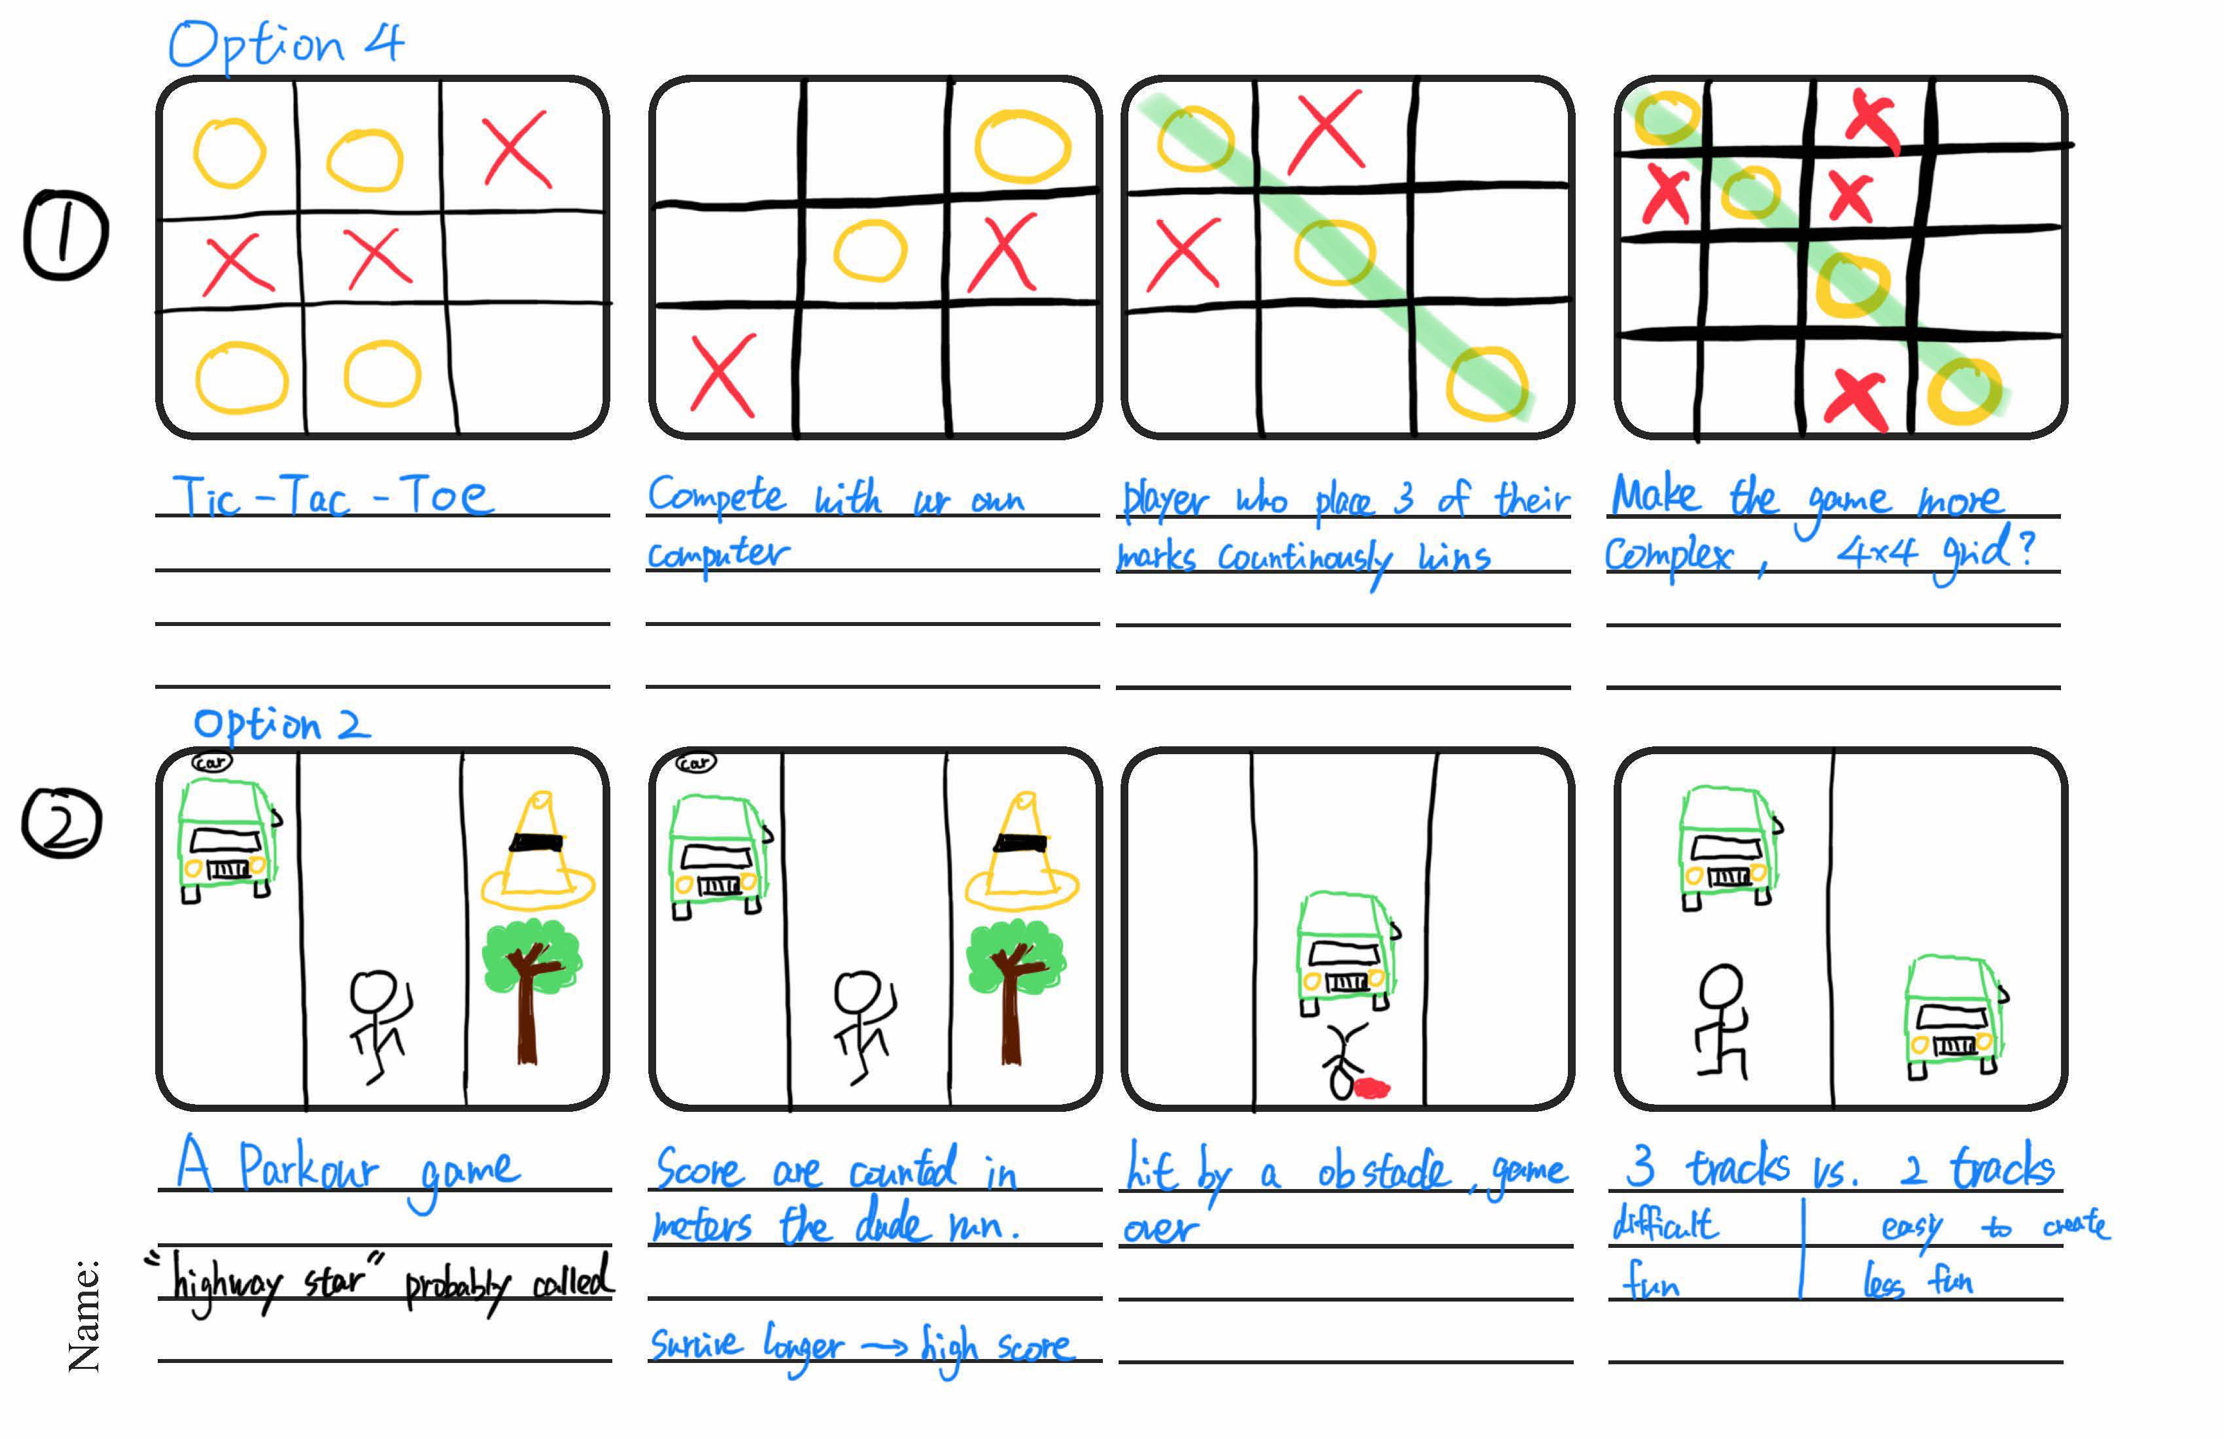 Option 4
1
Tic-Tac-Toe
Compete with ur own
computer
player who place 3 of their
marks countinously wins
Make the game more
complex, 4x4 grid?
Option 2
2
car
car
A Parkour game
"highway star" probably called
Score are counted in
meters the dude run.
Survive longer → high score
hit by a obstacle, game
over
3 tracks vs. 2 tracks
difficult | easy to create
fun | less fun
Name: